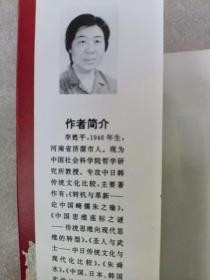 作者简介
李甦平,1946年生,
河南省济源市人。现为
中国社会科学院哲学研
究所教授。专攻中日韩
传统文化比较。主要著
作有:《转机与革新——
论中国畸儒朱之瑜》、
《中国思维座标之谜
——传统思维向现代思
维的转型》、《圣人与武
士——中日传统文化与
现代化比较》、《朱舜
水》、《中国、日本、韩国